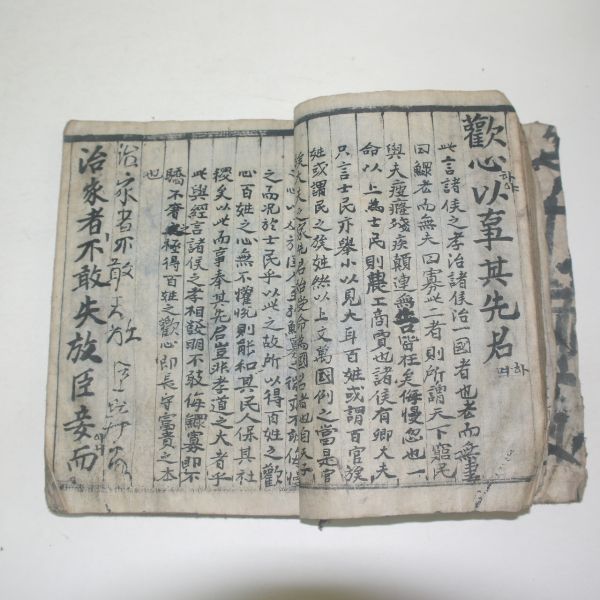 歡心以事其先君
하야
하며
此言諸侯之孝治諸侯治一國者也老而無妻
曰鰥老而無夫曰寡此二者則所謂天下窮民
與夫疲癃殘疾顛連無告皆在矣侮慢忽也一
命以上為士民則農工商賈也諸侯有卿大夫
只言士民亦擧小以見大耳百姓或謂百官族
姓或謂民之族姓然以上文萬國例之當是官
之而况於士民乎以此之故所以得百姓之歡
心百姓之心無不懽悅則能和其民人保其社
稷矣以此而事奉其先君豈非孝道之大者乎
此與經言諸侯之孝相發明不敢侮鰥寡即不
驕不奢之極得百姓之歡心即長守富貴之本
也
治家者不敢失
治家者不敢失放臣妾而